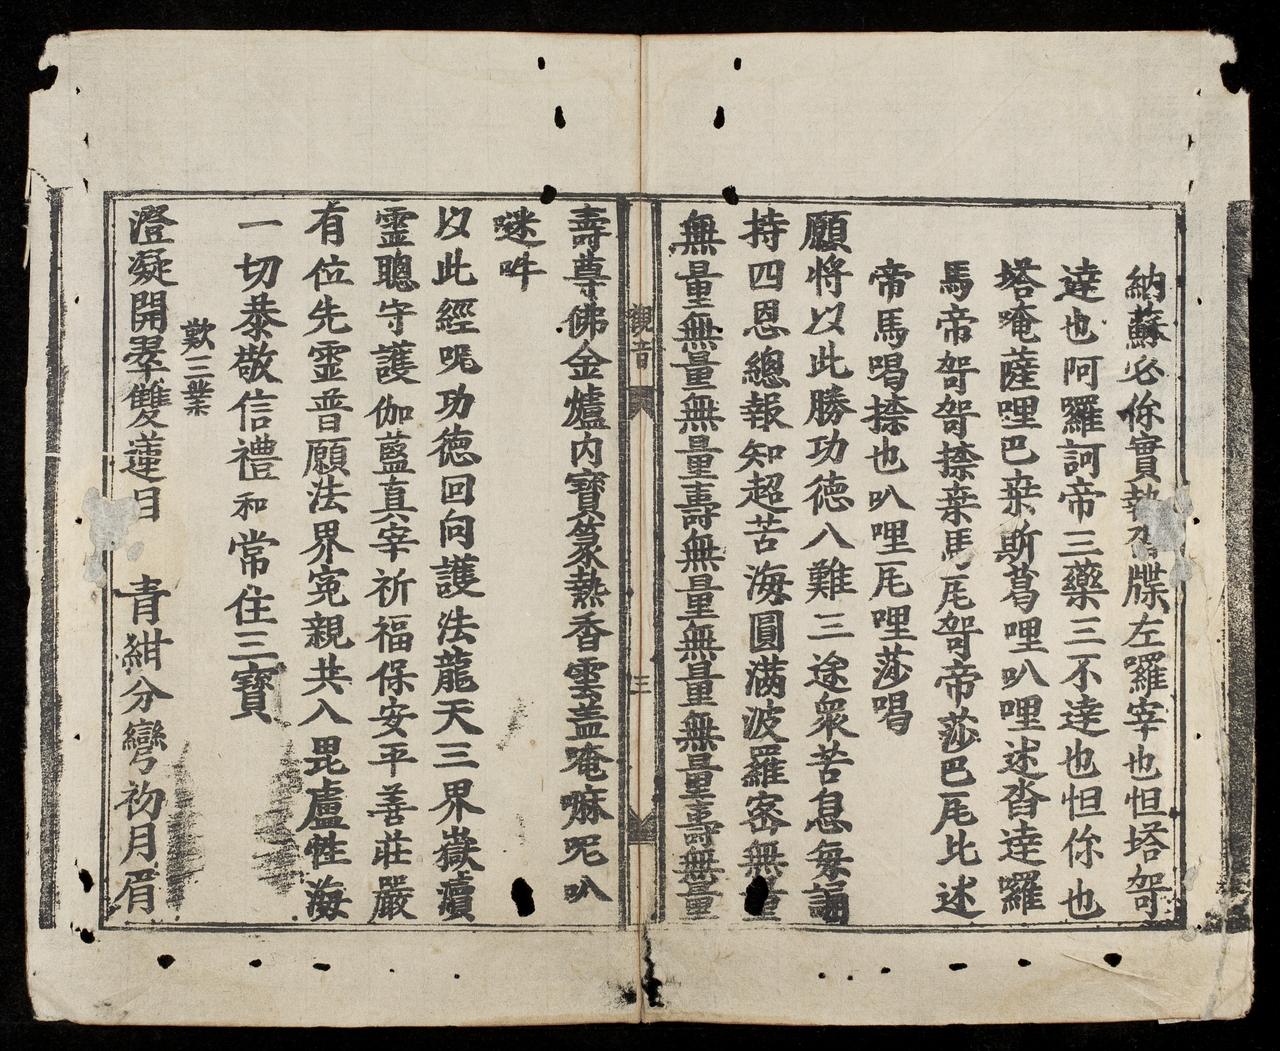 納蘇必你實執沓牒左羅宰也怛塔哿
達也阿羅訶帝三藥三不達也怛你也
塔唵薩哩巴桒斯葛哩叭哩述沓達囉
馬帝哿哿捺桒馬厇哿帝莎巴厇比述
帝馬喝捺也叭哩厇哩莎喝
願將以此勝功德八難三途衆苦息每誦
持四恩總報知超苦海圓滿波羅密無量
無量無量無量壽無量無量無量壽無量
觀音
三
壽尊佛金爐內寶篆熱香雲盖唵嘛呢叭
𠺗吽
以此經呪功德回向護法龍天三界嶽瀆
霊聰守護伽藍真宰祈福保安平善莊嚴
有位先霊普願法界寃親共入毘盧性海
一切恭敬信禮和常住三寶
歎三業
澄凝開翠雙蓮目 青紺分彎初月眉